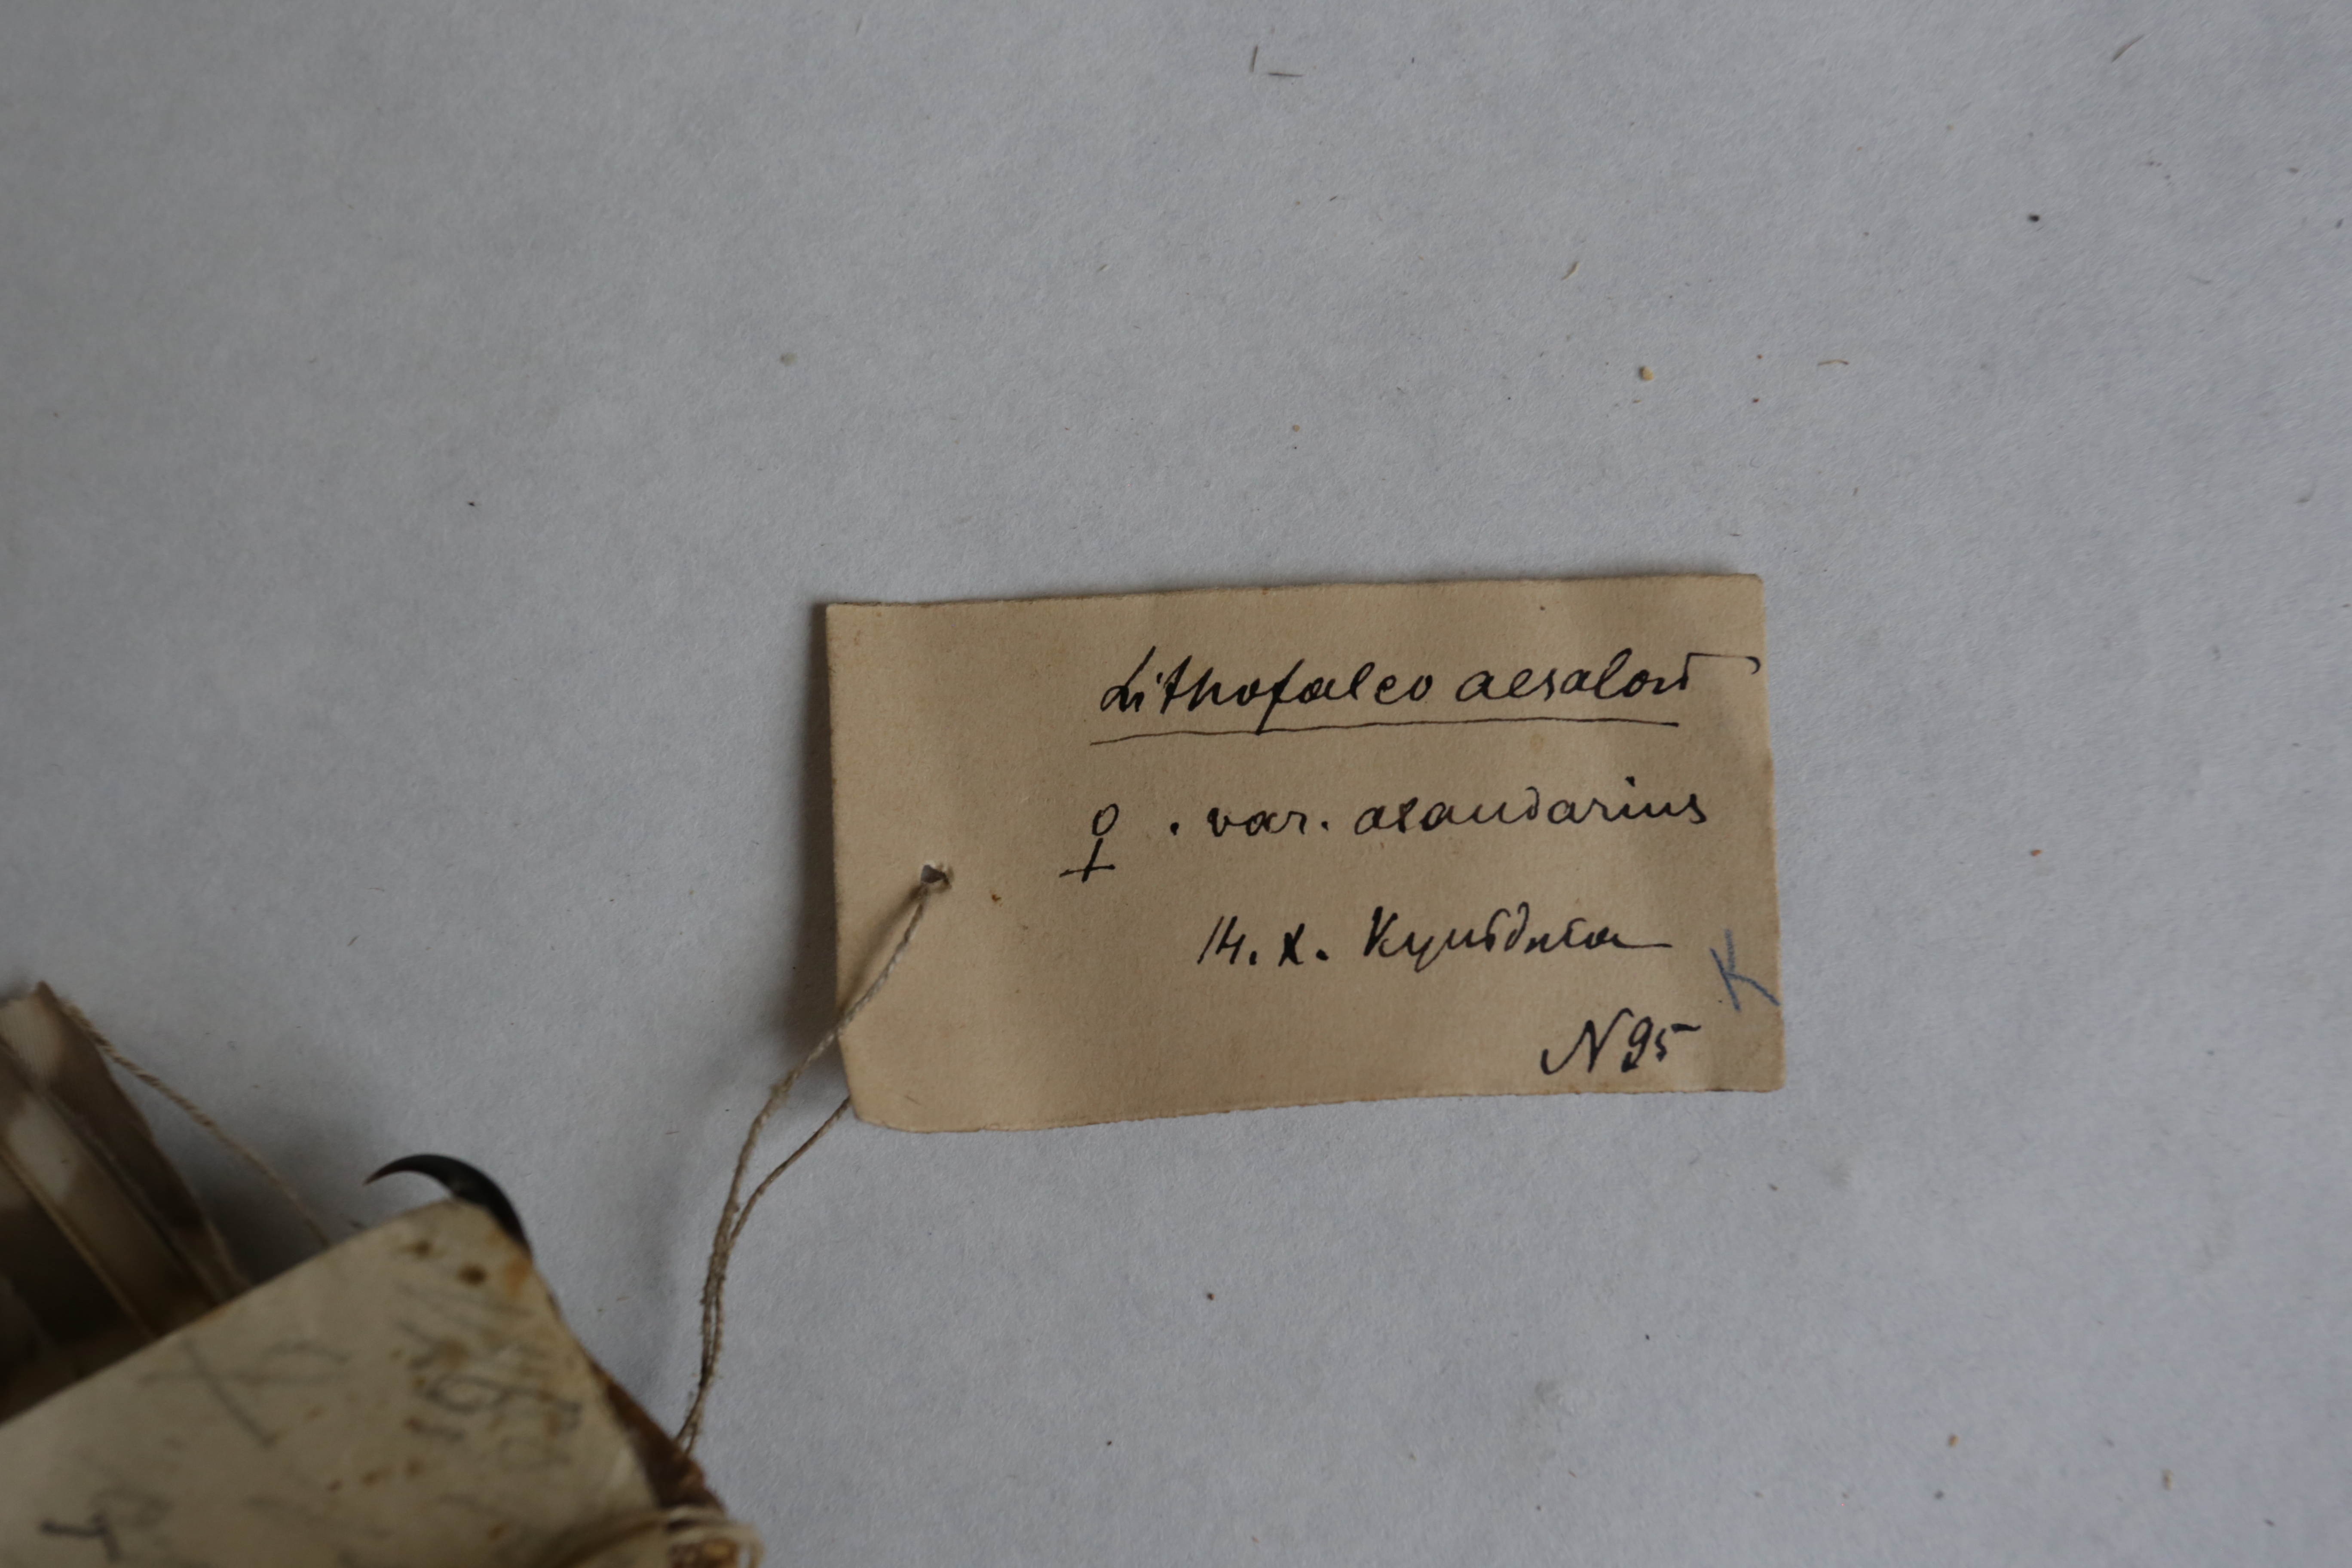 Lithofalco aesalon
♀ . var. alaudarius
14. X. Кульджа
K
N 95